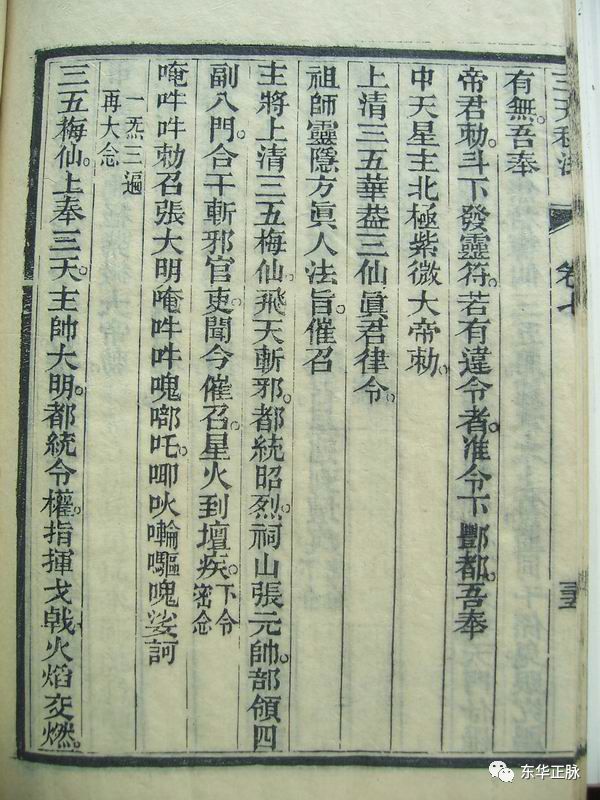 三天秘法
卷七
三五
有無。吾奉
帝君勅。斗下發靈符。若有違令者。准令下酆都。吾奉
中天星主北極紫微大帝勅。
上清三五華葢三仙眞君律令。
祖師靈隱方眞人法旨。催召
主將上清三五梅仙。飛天斬邪。都統昭烈。祠山張元帥。部領四
副八門。合干斬邪官吏。聞今催召。星火到壇。疾。下令
密念
唵吽吽勅召張大明唵吽吽吒。吙娑訶
一炁三遍
再大念
三五梅仙。上奉三天。主帥大明。都統令權。指揮戈戟火焰交燃。
东华正脉